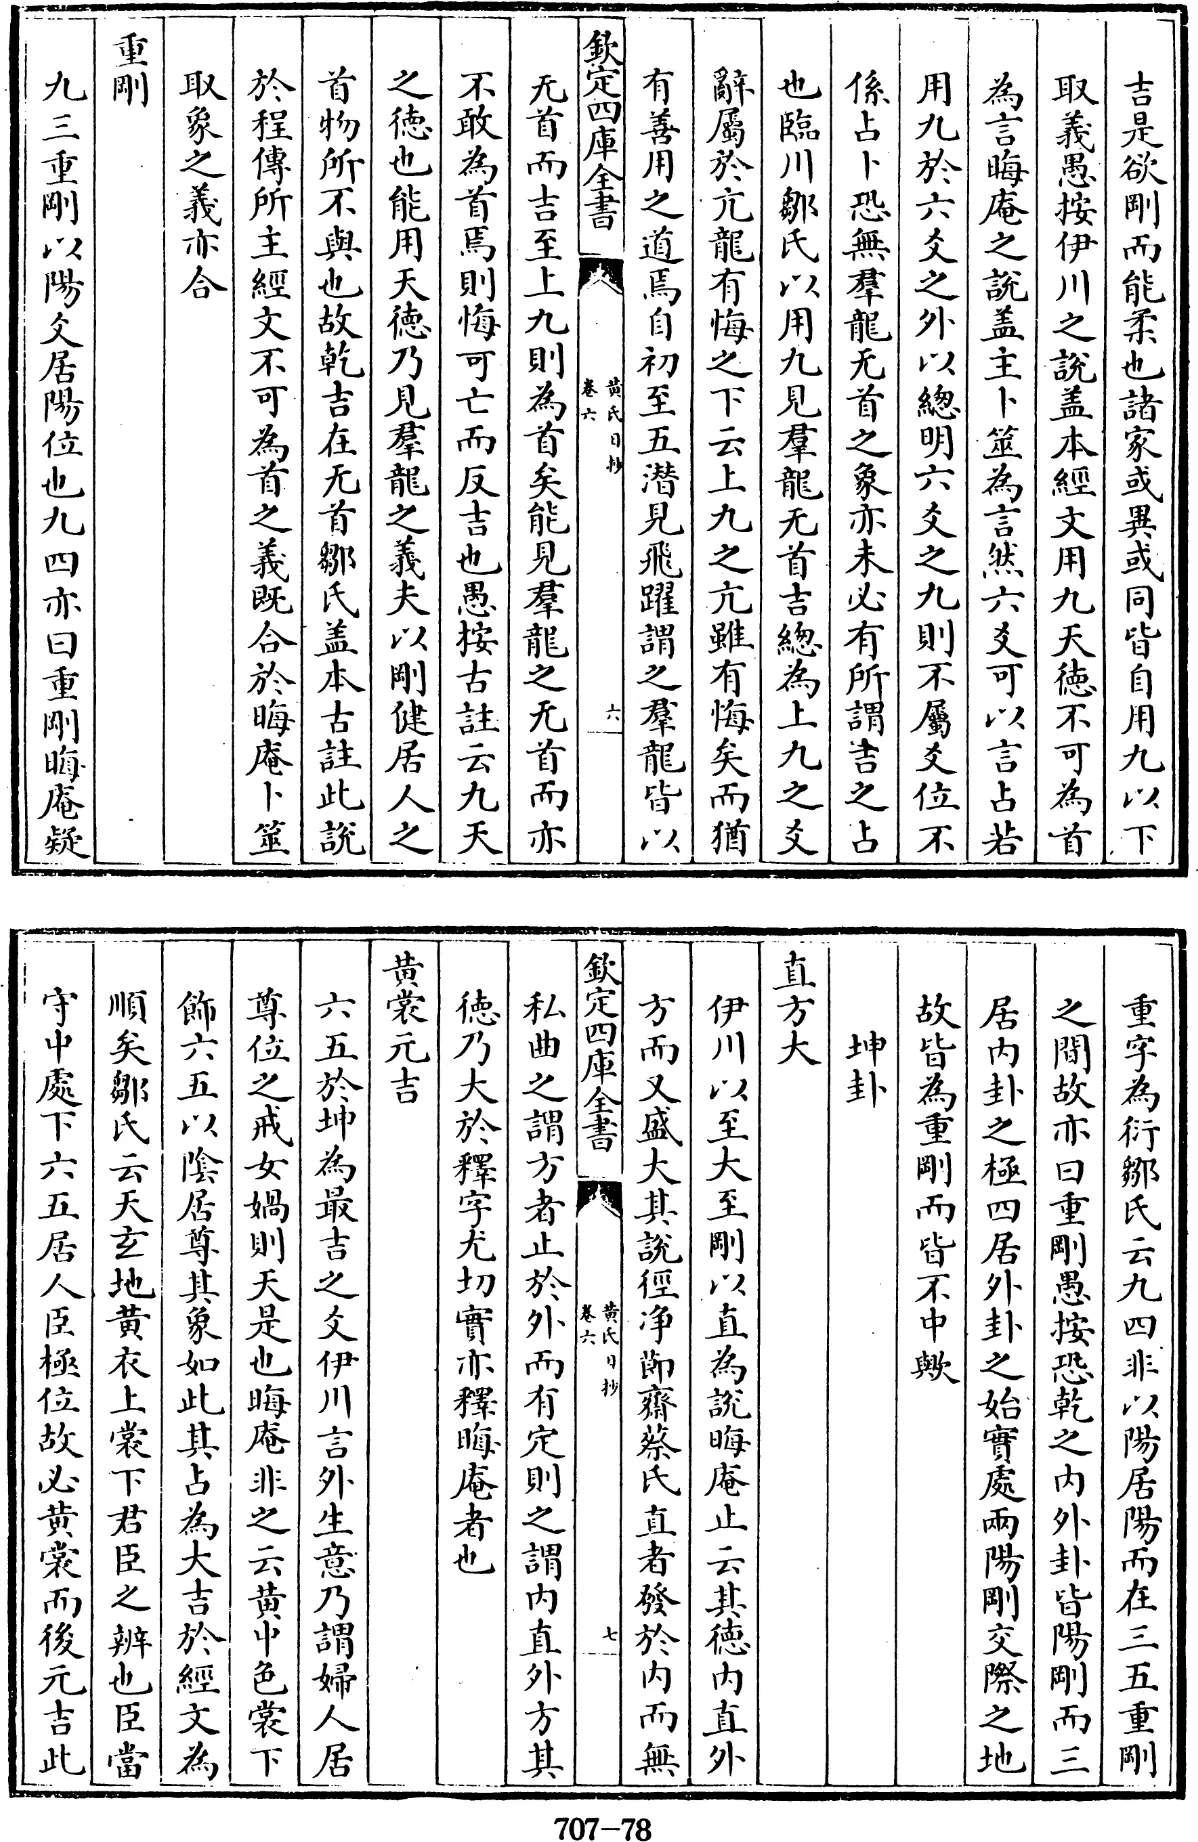 吉是欲剛而能柔也諸家或異或同皆自用九以下
取義愚按伊川之說盖本經文用九天徳不可為首
為言晦庵之說盖主卜筮為言然六爻可以言占若
用九於六爻之外以總明六爻之九則不屬爻位不
係占卜恐無羣龍无首之象亦未必有所謂吉之占
也臨川鄒氏以用九見羣龍无首吉總為上九之爻
辭屬於亢龍有悔之下云上九之亢雖有悔矣而猶
有善用之道焉自初至五潛見飛躍謂之羣龍皆以
欽定四庫全書
黄氏日抄
卷六
六
无首而吉至上九則為首矣能見羣龍之无首而亦
不敢為首焉則悔可亡而反吉也愚按古註云九天
之徳也能用天徳乃見羣龍之義夫以剛健居人之
首物所不與也故乾吉在无首鄒氏盖本古註此說
於程傳所主經文不可為首之義既合於晦庵卜筮
取象之義亦合
重剛
九三重剛以陽爻居陽位也九四亦曰重剛晦庵疑
重字為衍鄒氏云九四非以陽居陽而在三五重剛
之間故亦曰重剛愚按恐乾之内外卦皆陽剛而三
居内卦之極四居外卦之始實處兩陽剛交際之地
故皆為重剛而皆不中歟
坤卦
直方大
伊川以至大至剛以直為說晦庵止云其徳内直外
方而又盛大其說徑净節齋蔡氏直者發於内而無
欽定四庫全書
黄氏日抄
卷六
七
私曲之謂方者止於外而有定則之謂内直外方其
徳乃大於釋字尤切實亦釋晦庵者也
黄裳元吉
六五於坤為最吉之爻伊川言外生意乃謂婦人居
尊位之戒女媧則天是也晦庵非之云黄中色裳下
飾六五以陰居尊其象如此其占為大吉於經文為
順矣鄒氏云天玄地黄衣上裳下君臣之辨也臣當
守中處下六五居人臣極位故必黄裳而後元吉此
707-78